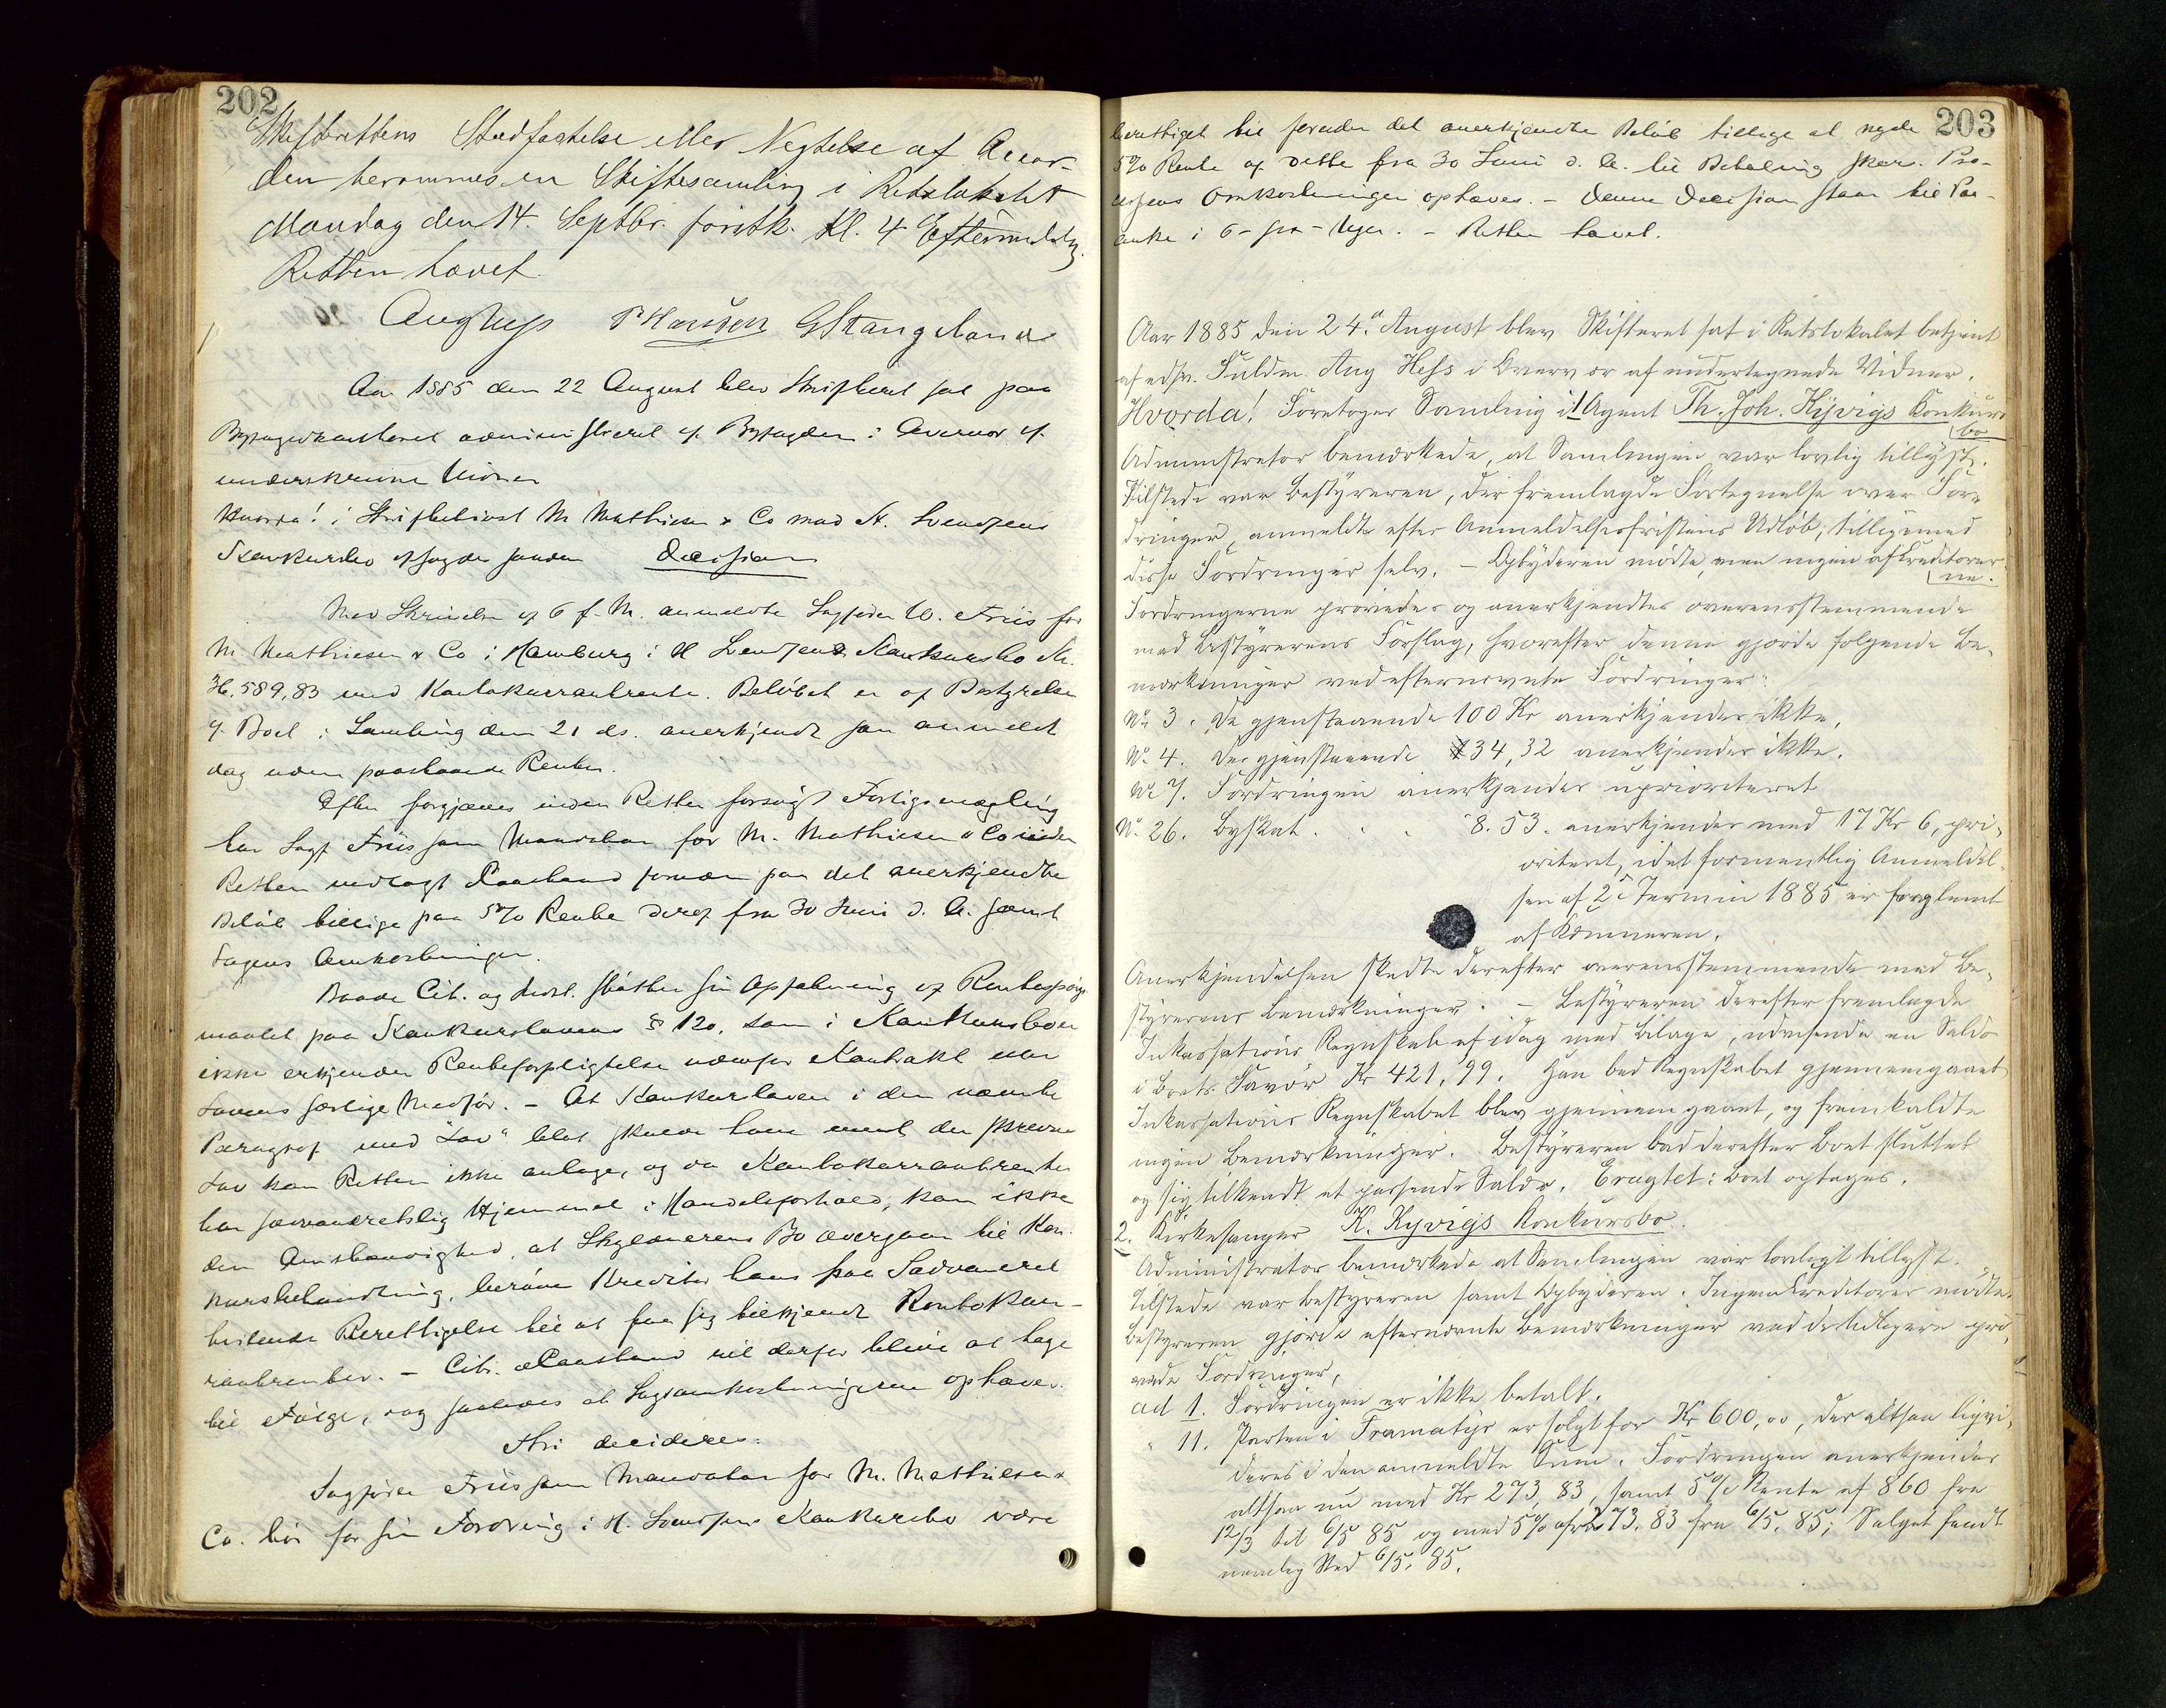 202
Skifterettens Stadfæstelse eller Negtelse af Accor-
den berammes en Skiftesamling i Retslokalet
Mandag den 14. Septbr. førstk. Kl. 4 Eftermiddag.
Retten hævet.
Augtrup P Hansen G Stangeland
Aar 1885 den 22 August blev Skifteret sat paa
Byfogedkontoret administreret af Byfogden i Overvær af
underskrevne Vidner
Hvorda! i Skiftetvist M Mathiesen & Co mod H. Svendsens
Konkursbo afsagdes saadan Decision
Med Skrivelse af 6 f. M. anmeldte Sagfører U. Friis for
M. Mathiesen & Co i Hamburg i H Svendsens Konkursbo Kr.
36.589,83 med Kontokurrantrente. Beløbet er af Bestyrelsen
af Boet i Samling den 21 ds. anerkjendt som anmeldt
dog uden paastaaede Renter.
Efter forgjæves inden Retten forsøgt Forligsmægling
har Sagf Friis som Mandatar for M. Mathiesen & Co inden
Retten nedlagt Paastand foruden paa det anerkjendte
Beløb tillige paa 5% Rente deraf fra 30 Juni d. A. samt
Sagens Omkostninger.
Baade Cit. og Indst. støtter sin Opfatning af Rentespørgs-
maalet paa Konkurslovens § 120, som i Konkursboer
ikke erkjender Renteforpligtelse udenfor Kontrakt eller
Lovens særlige Medfør. – At Konkursloven i den nævnte
Paragraf med "Lov" blot skulde have ment den skrevne
Lov kan Retten ikke antage, og da Kontokurrantrenter
har sædvaneretslig Hjemmel i Handelsforhold, kan ikke
den Omstændighed, at Skyldnerens Bo overgaar til Kon-
kursbehandling, berøve Kreditor hans paa Sædvaneret
hvilende Berettigelse til at faa sig tilkjendt Kontokur-
rantrenter. – Cit. Paastand vil derfor blive at tage
til Følge, dog saaledes at Sagsomkostningerne ophæves.
Thi decideres:
Sagfører Friis som Mandatar for M. Mathiesen &
Co. bør for sin Fordring i H. Svendsens Konkursbo være
203
berettiget til foruden det anerkjendte Beløb tillige at nyde
5% Rente af dette fra 30 Juni d. A. til Betaling sker. Pro-
cessens Omkostninger ophæves. – Denne Decision staar til Paa-
anke i 6 Uger. – Retten hævet.
Aar 1885 den 24.d August blev Skifteret sat i Retslokalet betjent
af edsv. Fuldm. Aug Hess i Overvær af undertegnede Vidner.
Hvorda! Foretoges Samling i 1 Agent Th. Joh. Kyvigs Konkurs
bo
Administrator bemærkede, at Samlingen var lovlig tillyst.
Tilstede var Bestyreren, der fremlagde Fortegnelse over For-
dringer, anmeldte efter Anmeldelsesfristens Udløb, tilligemed
disse Fordringer selv. – Opbyderen mødte, men ingen af Creditorer
ne.
Fordringerne prøvedes og anerkjendtes overensstemmende
med Bestyrerens Forslag, hvorefter denne gjorde følgende Be-
mærkninger ved efternævnte Fordringer:
No 3. De gjenstaaende 100 Kr anerkjendes ikke.
No 4. De gjenstaaende 34,32 anerkjendes ikke.
No 7. Fordringen anerkjendes uprioriteret
No 26. Byskat . . . 8.53. anerkjendes med 17 Kr 6, pri-
oriteret, idet formentlig Anmeldel-
sen af 2 Termin 1885 er forglemt
af Kæmneren.
Anerkjendelsen skedte derefter overensstemmende med Be-
styrerens Bemærkninger. – Bestyreren derefter fremlagde
Inkassations Regnskab af idag med Bilage, udvisende en Saldo
i Boets Favør Kr 421,99. Han bad Regnskabet gjennemgaaet
Inkassations Regnskabet blev gjennemgaaet, og fremkaldte
ingen Bemærkninger. Bestyreren bad derefter Boet sluttet
og sig tilkendt et passende Salær. Eragtet: Boet optages.
2. Kirkesanger K. Kyvigs Konkursbo.
Administrator bemærkede at Samlingen var lovligt tillyst.
Tilstede var Bestyreren samt Opbyderen. Ingen Creditorer mødte.
Bestyreren gjorde efternævnte Bemærkninger ved de tidligere prø-
vede Fordringer,
ad 1. Fordringen er ikke betalt.
" 11. Parten i Framatyr er solgt for Kr 600,00, der altsaa liqvi-
deres i den anmeldte Sum. Fordringen anerkjendes
altsaa nu med Kr 273,83, samt 5% Rente af 860 fra
12/3 til 6/5 85 og med 5% af 273.83 fra 6/5. 85; Salget fandt
nemlig Sted 6/5. 85.